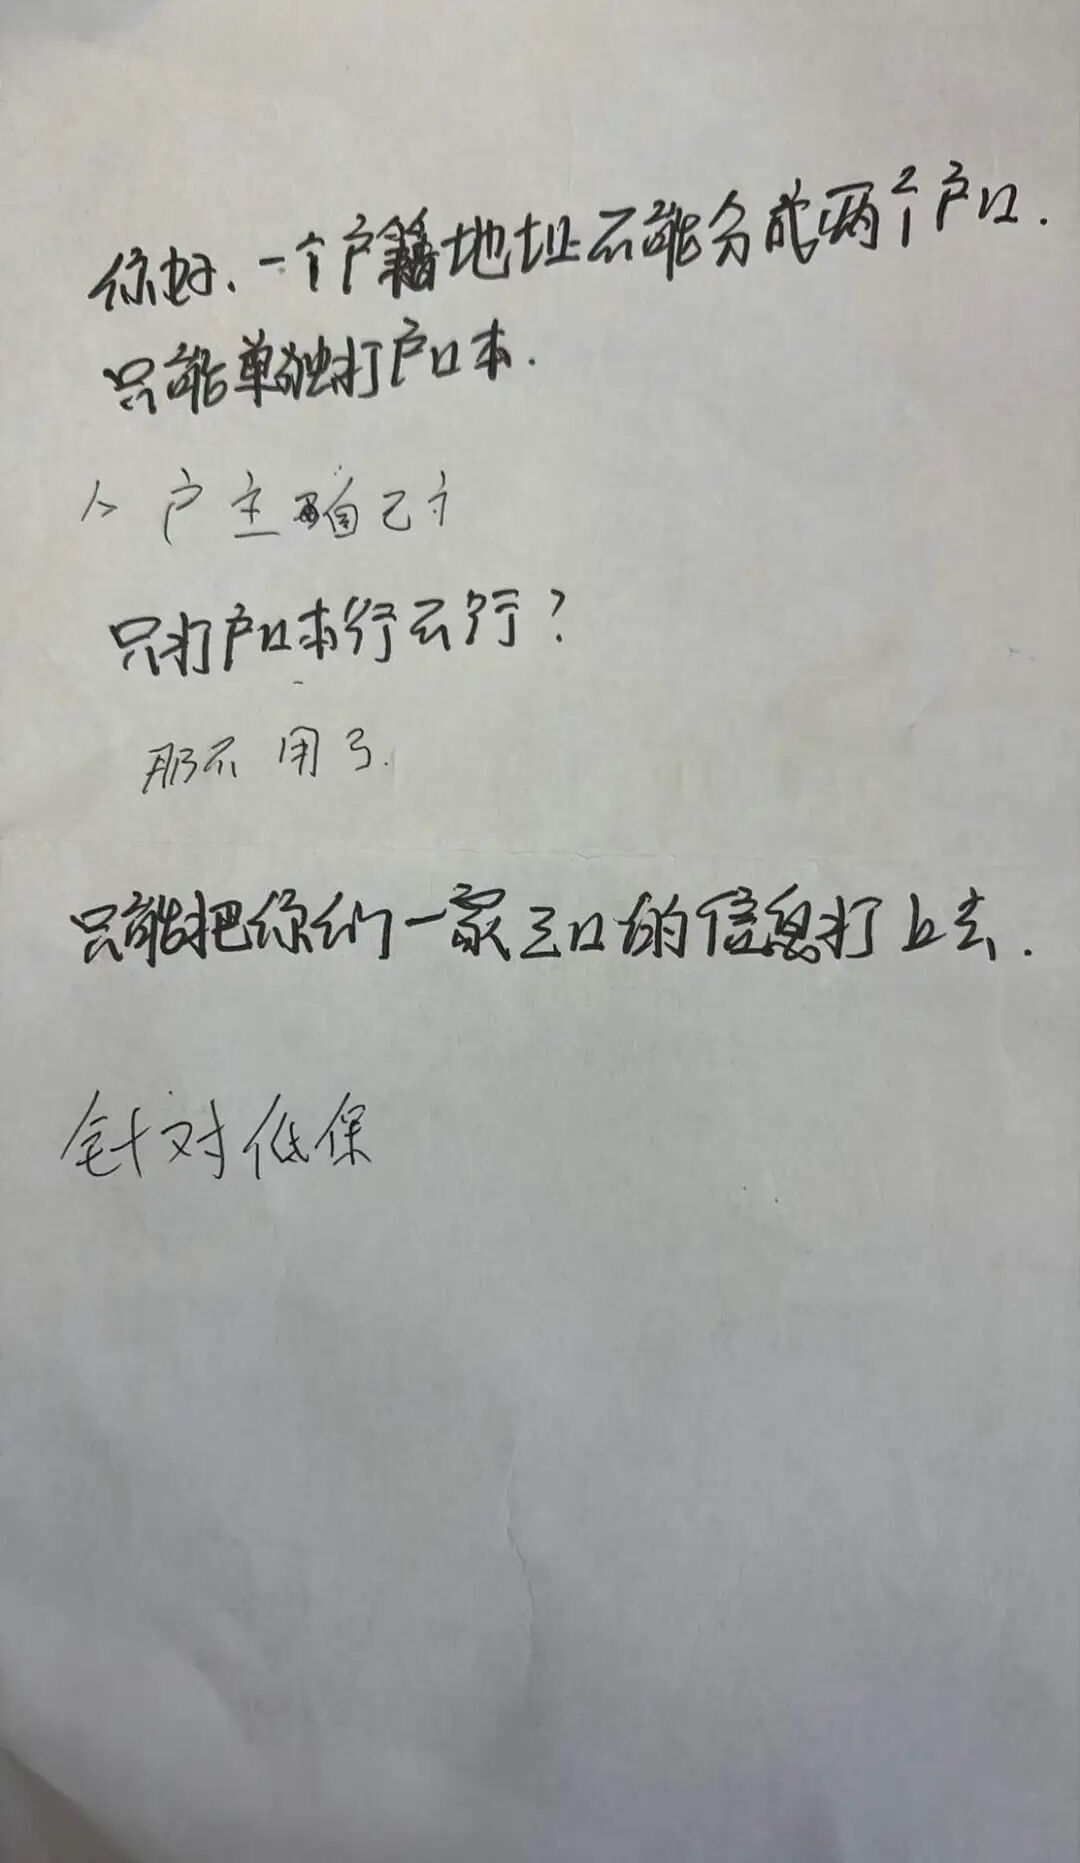 你好、一个户籍地址不能分成两个户口.
只能单独打户口本.
户主 自己
只打户口本行不行?
那不用了.
只能把你们一家三口的信息打上去.
针对低保